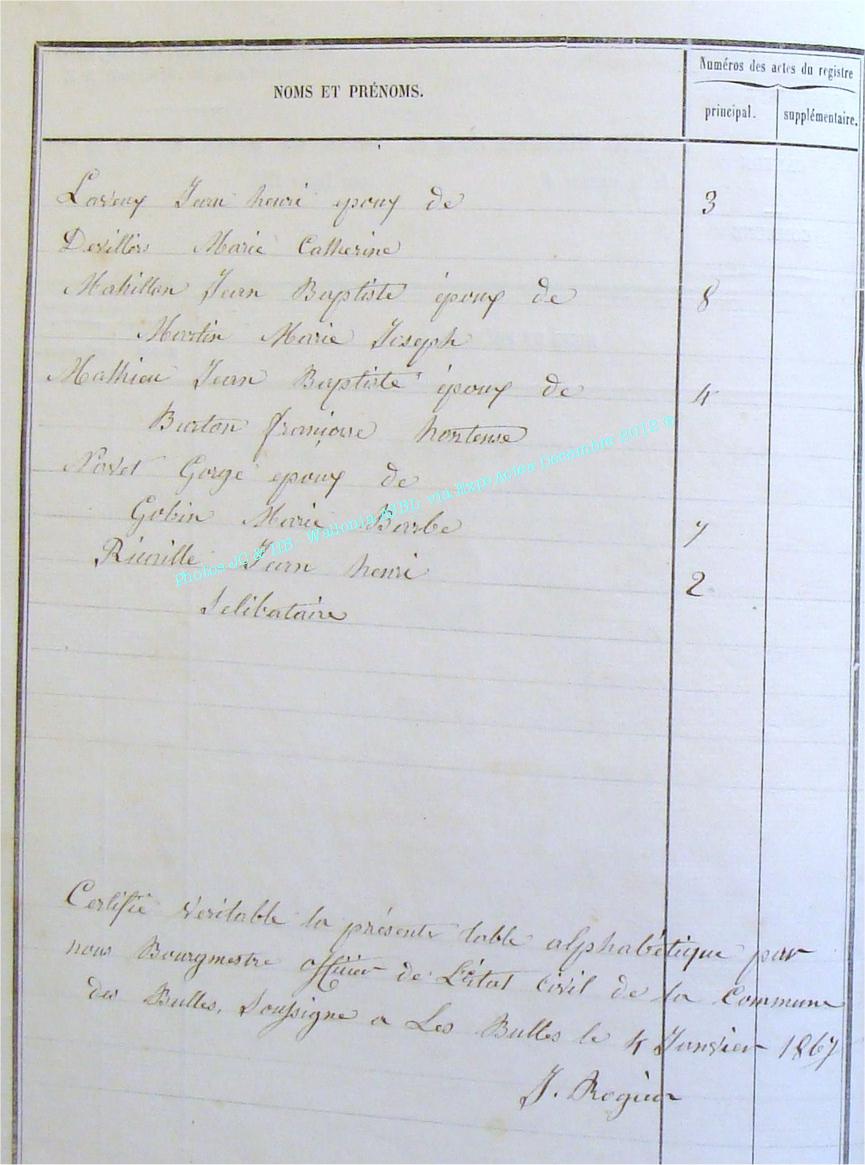 NOMS ET PRÉNOMS.
Numéros des actes du registre
principal.
supplémentaire.
Laveux Jean henri epoux de 3
Devillers Marie Catherine
Mahillon Jean Baptiste époux de 8
Martin Marie Joseph
Mathieu Jean Baptiste époux de 4
Burton françoise hortense
Novet Gorge epoux de
Gobin Marie Barbe 7
Jean henri 2
Selibataire
Photos JC & HB - Wallonia via ExpoActes Décembre 2012 ©
Certifié veritable la présente table alphabétique par
nous Bourgmestre officier de L'état civil de la Commune
des Bulles, Soussigne a Les Bulles le 4 Janvier 1867
J. Rogier